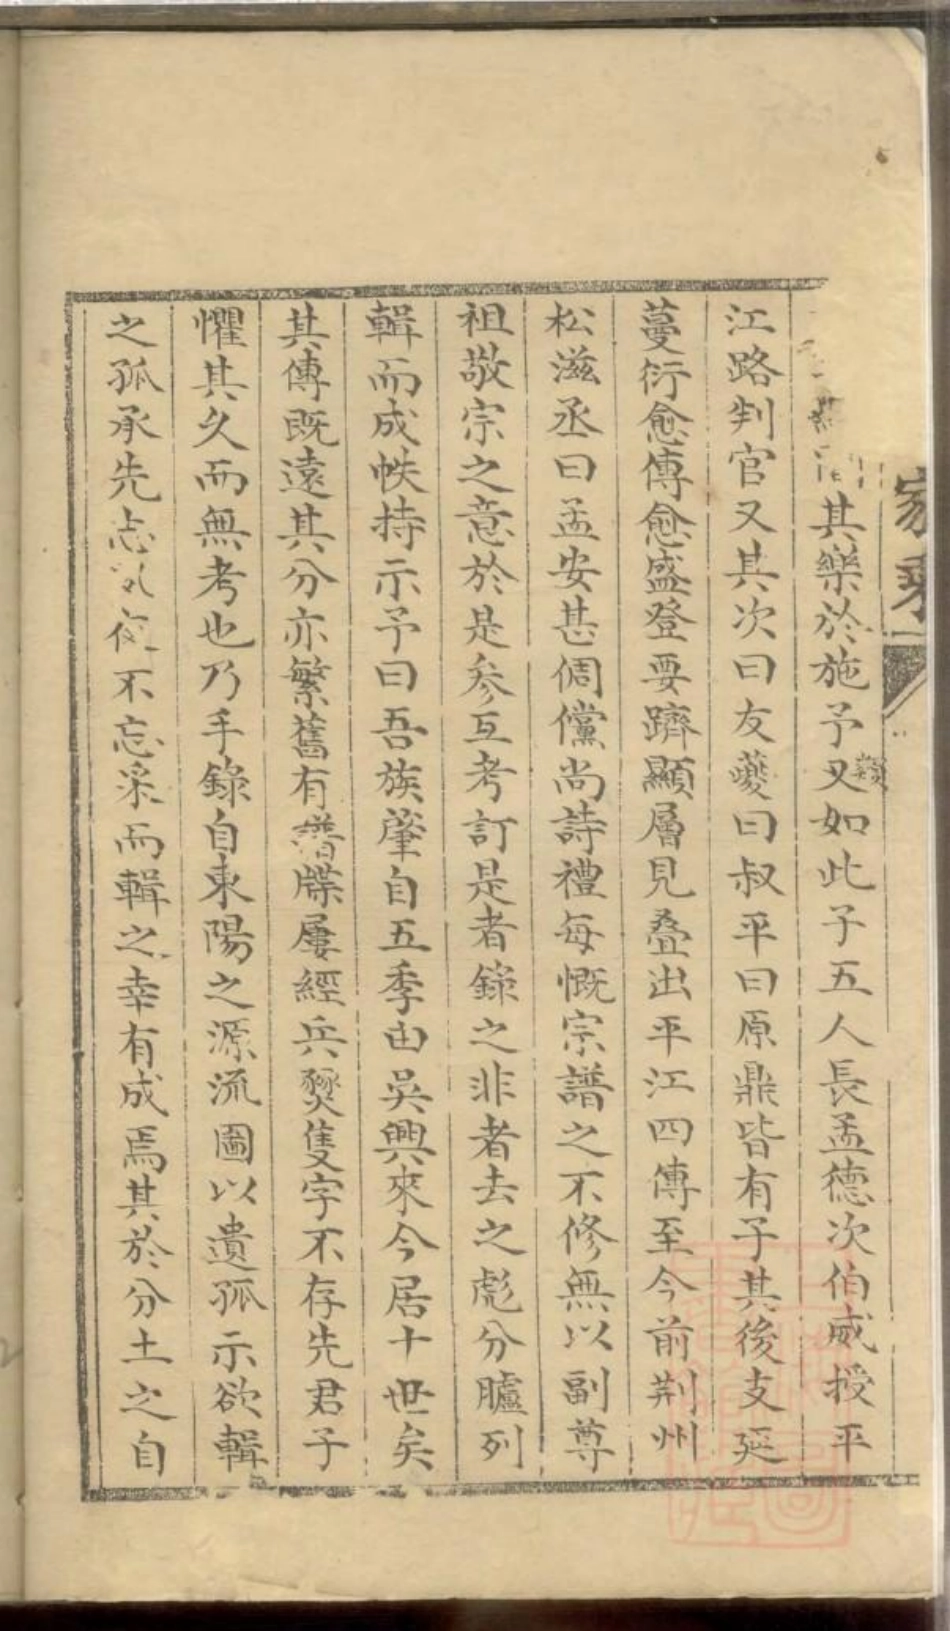 家乘
其樂於施予又如此子五人長孟德次伯威授平
江路判官又其次曰友夔曰叔平曰原鼎皆有子其後支延
蔓衍愈傳愈盛登要躋顯層見叠出平江四傳至今前荆州
松滋丞曰孟安甚倜儻尚詩禮每慨宗譜之不修無以副尊
祖敬宗之意於是參互考訂是者錄之非者去之彪分臚列
輯而成帙持示予曰吾族肇自五季由吳興來今居十世矣
其傳既遠其分亦繁舊有譜牒屢經兵燹隻字不存先君子
懼其久而無考也乃手錄自東陽之源流圖以遺孤示欲輯
之孤承先志夙夜不忘采而輯之幸有成焉其於分土之自